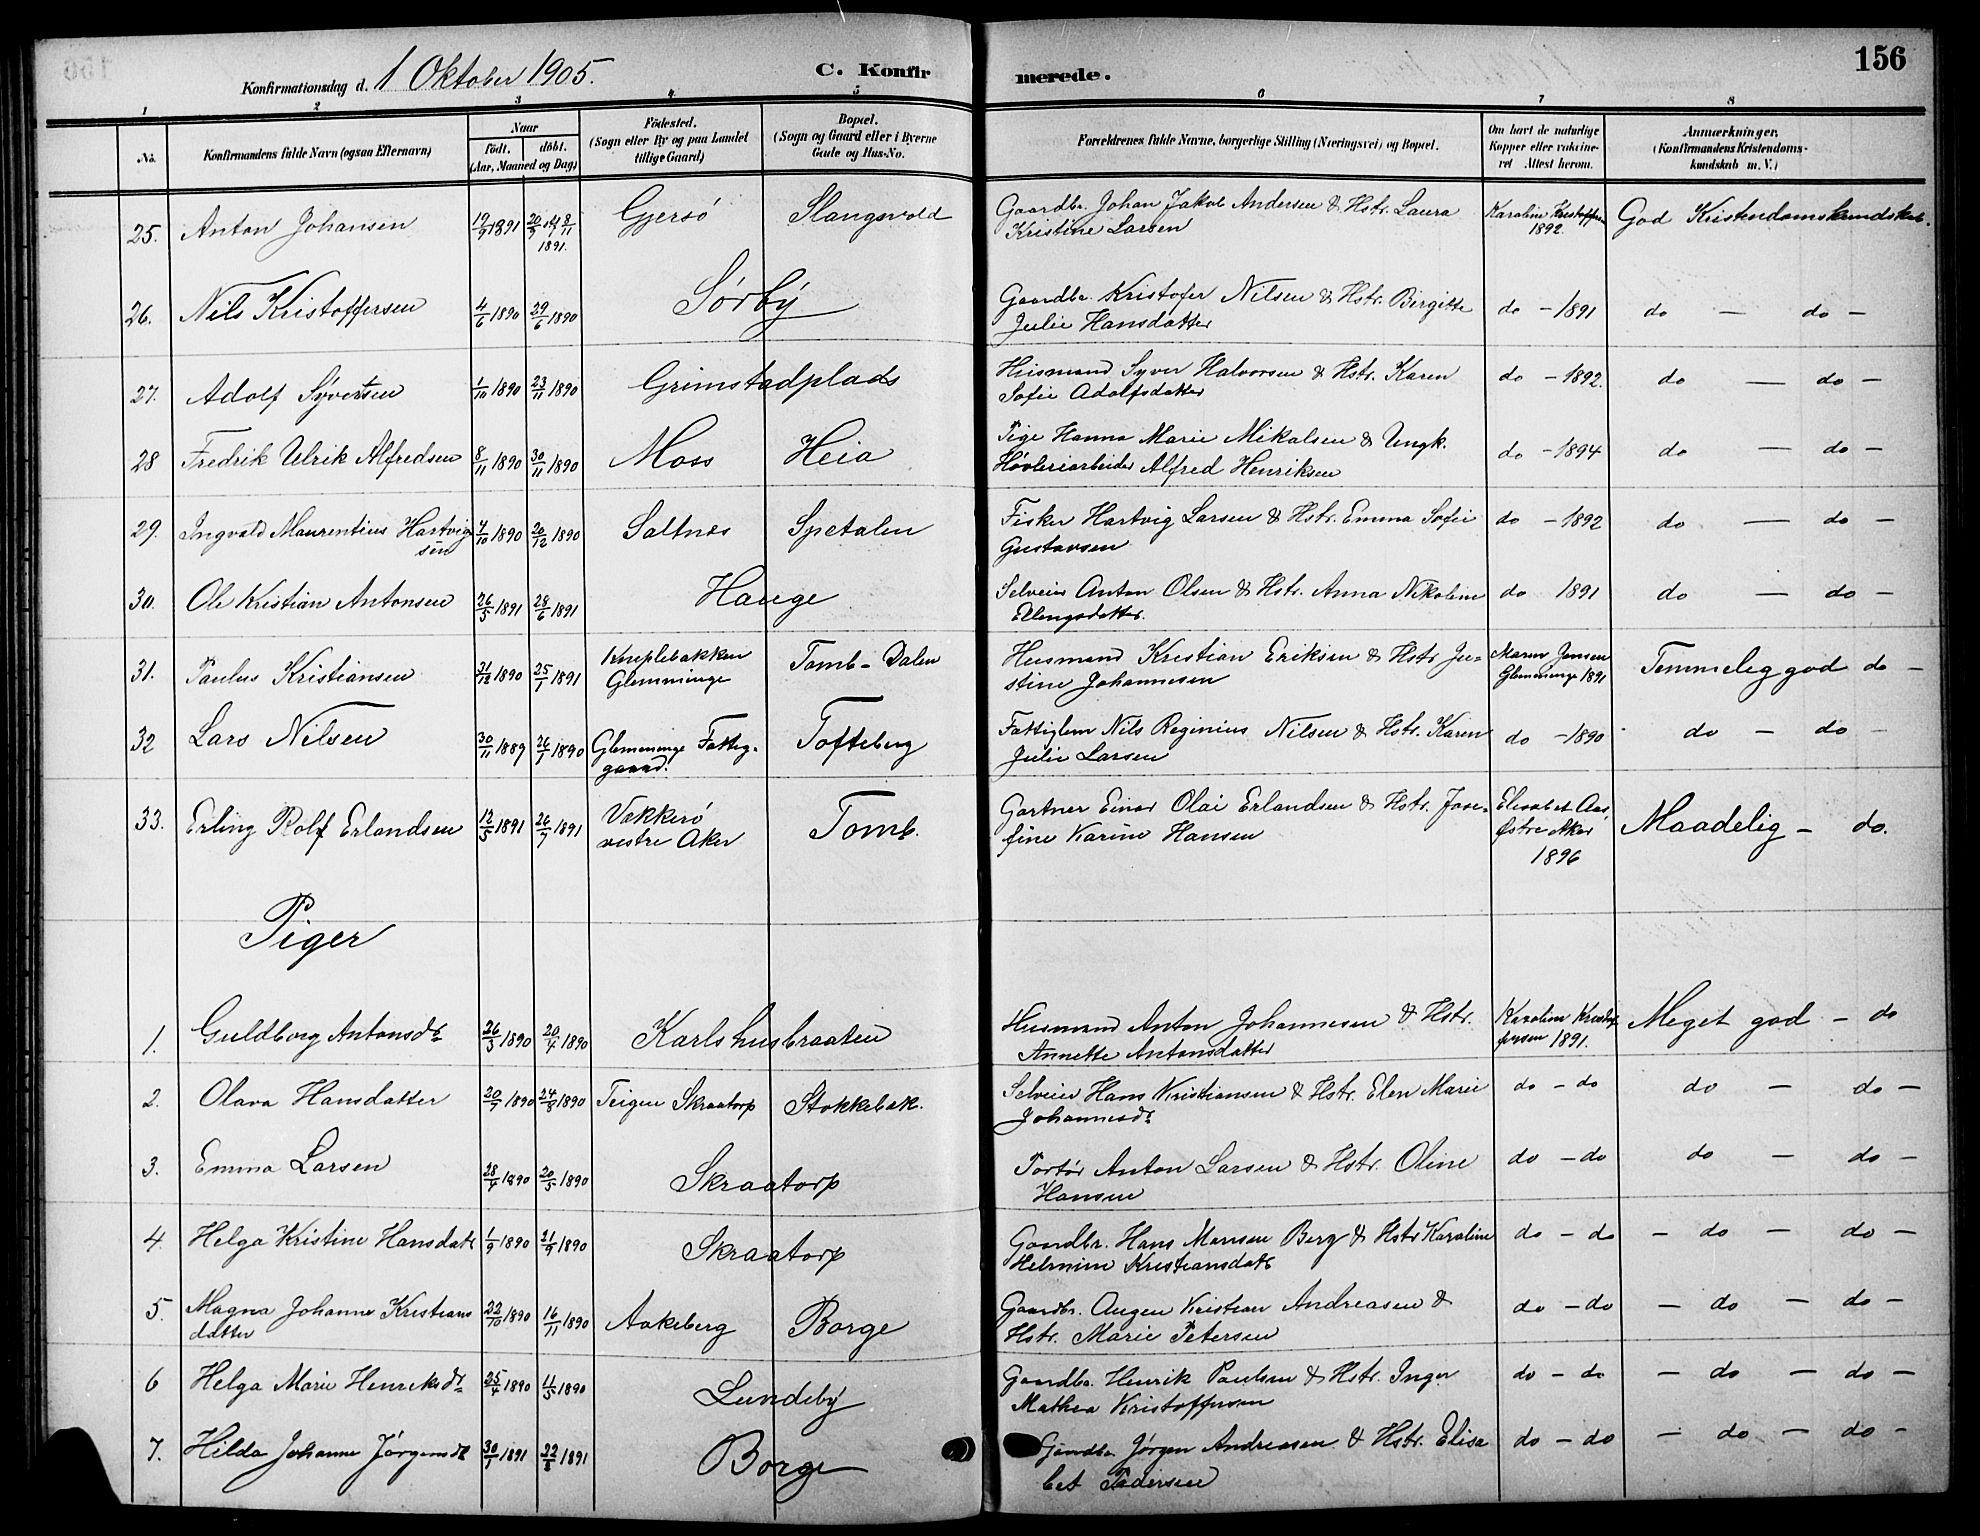 156
Konfirmationsdag d. 1 Oktober 1905.
C. Konfirmerede.
1 2 3 4 5 6 7 8
No.
Konfirmandens fulde Navn (ogsaa Efternavn)
Naar
födt. döbt.
(Aar, Maaned og Dag)
Födested.
(Sogn eller By og paa Landet
tillige Gaard)
Bopæl.
(Sogn og Gaard eller i Byerne
Gade og Hus-No.
Forældrenes fulde Navne, borgerlige Stilling (Næringsvei) og Bopæl.
Om havt de naturlige
Kopper eller vakcine-
ret Attest herom.
Anmærkninger.
(Konfirmandens Kristendoms-
kundskab m. V.)
25. Anton Johansen 19/9 1891 20/9 8/11 1891. Gjersö Slangsvold Gaardbr. Johan Jakob Andersen & Hstr. Laura
Kristine Larsen Karoline Kristoffersen 1892. God Kristendomskundskab.
26. Nils Kristoffersen 4/6 1890 29/6 1890 Sörby Gaardbr. Kristofer Nilsen & Hstr. Birgitte
Julie Hansdatter do - 1891 do — do —
27. Adolf Syvertsen 1/10 1890 23/11 1890 Grimstadplads Husmand Syver Halvorsen & Hstr. Karen
Sofie Adolfsdatter do - 1892. do — do —
28 Fredrik Ulrik Alfredsen 8/11 1890 30/11 1890 Moss Heia Pige Hanna Marie Mikalsen & Ungk.
Hövleriarbeider Alfred Henriksen do - 1894 do — do —
29. Ingvald Maurentius Hartvig-
sen 4/10 1890 20/12 1890 Saltnes Spetalen Fisker Hartvig Larsen & Hstr. Emma Sofie
Gustavsen do - 1892 do — do —
30. Ole Kristian Antonsen 26/5 1891 28/6 1891 Hauge Selveier Anton Olsen & Hstr. Anna Nikoline
Ellingsdatter. do 1891 do — do —
31. Paulus Kristiansen 31/12 1890 25/1 1891 Kneplebakken
Glemminge Tomb - Dalen Husmand Kristian Eriksen & Hstr Ju-
stine Johannesen Maren Jensen
Glemminge 1891 Temmelig god do —
32 Lars Nilsen 30/11 1889 26/1 1890 Glemminge Fattig-
gaard. Tofteberg Fattiglem Nils Reginius Nilsen & Hstr. Karen
Julie Larsen do - 1890 do — do —
33. Erling Rolf Erlandsen 12/5 1891 26/7 1891 Vækkerö
vestre Aker Tomb. Gartner Einar Olai Erlandsen & Hstr. Jose-
fine Karine Hansen Elisabet Aas,
Østre Aker
1896 Maadelig - do.
Piger
1. Guldborg Antonsdr 26/3 1890 20/4 1890 Karlshusbraaten Husmand Anton Johannesen & Hstr.
Annette Antonsdatter Karoline Kristof-
fersen 1891. Meget god - do
2. Olava Hansdatter 20/7 1890 24/8 1890 Teigen Skraatorp Stokkebak. Selveier Hans Kristiansen & Hstr. Elen Marie
Johannesdr do - do do — do —
3. Emma Larsen 28/4 1890 20/5 1890 Skraatorp Portör Anton Larsen & Hstr. Oline
Hansen do - do do — do —
4. Helga Kristine Hansdatr 1/9 1890 21/9 1890 Skraatorp Gaardbr. Hans Mansen Berg & Hstr Karoline
Helmine Kristiansdatr do - do - do — do —
5. Magna Johanne Kristians
datter 22/10 1890 16/11 1890 Aakeberg Borge Gaardbr. Augen Kristian Andreasen &
Hstr. Marie Petersen do - do - do — do —
6 Helga Marie Henriksdr 25/4 1890 11/5 1890 Lundeby Gaardbr. Henrik Paulsen & Hstr. Inger
Mathea Kristoffersen do - do - do — do —
7. Hilda Johanne Jörgensdr 30/1 1891 22/2 1891 Borge Gaardbr Jörgen Andreasen & Hstr. Elisa
bet Pedersen do - do - do — do —